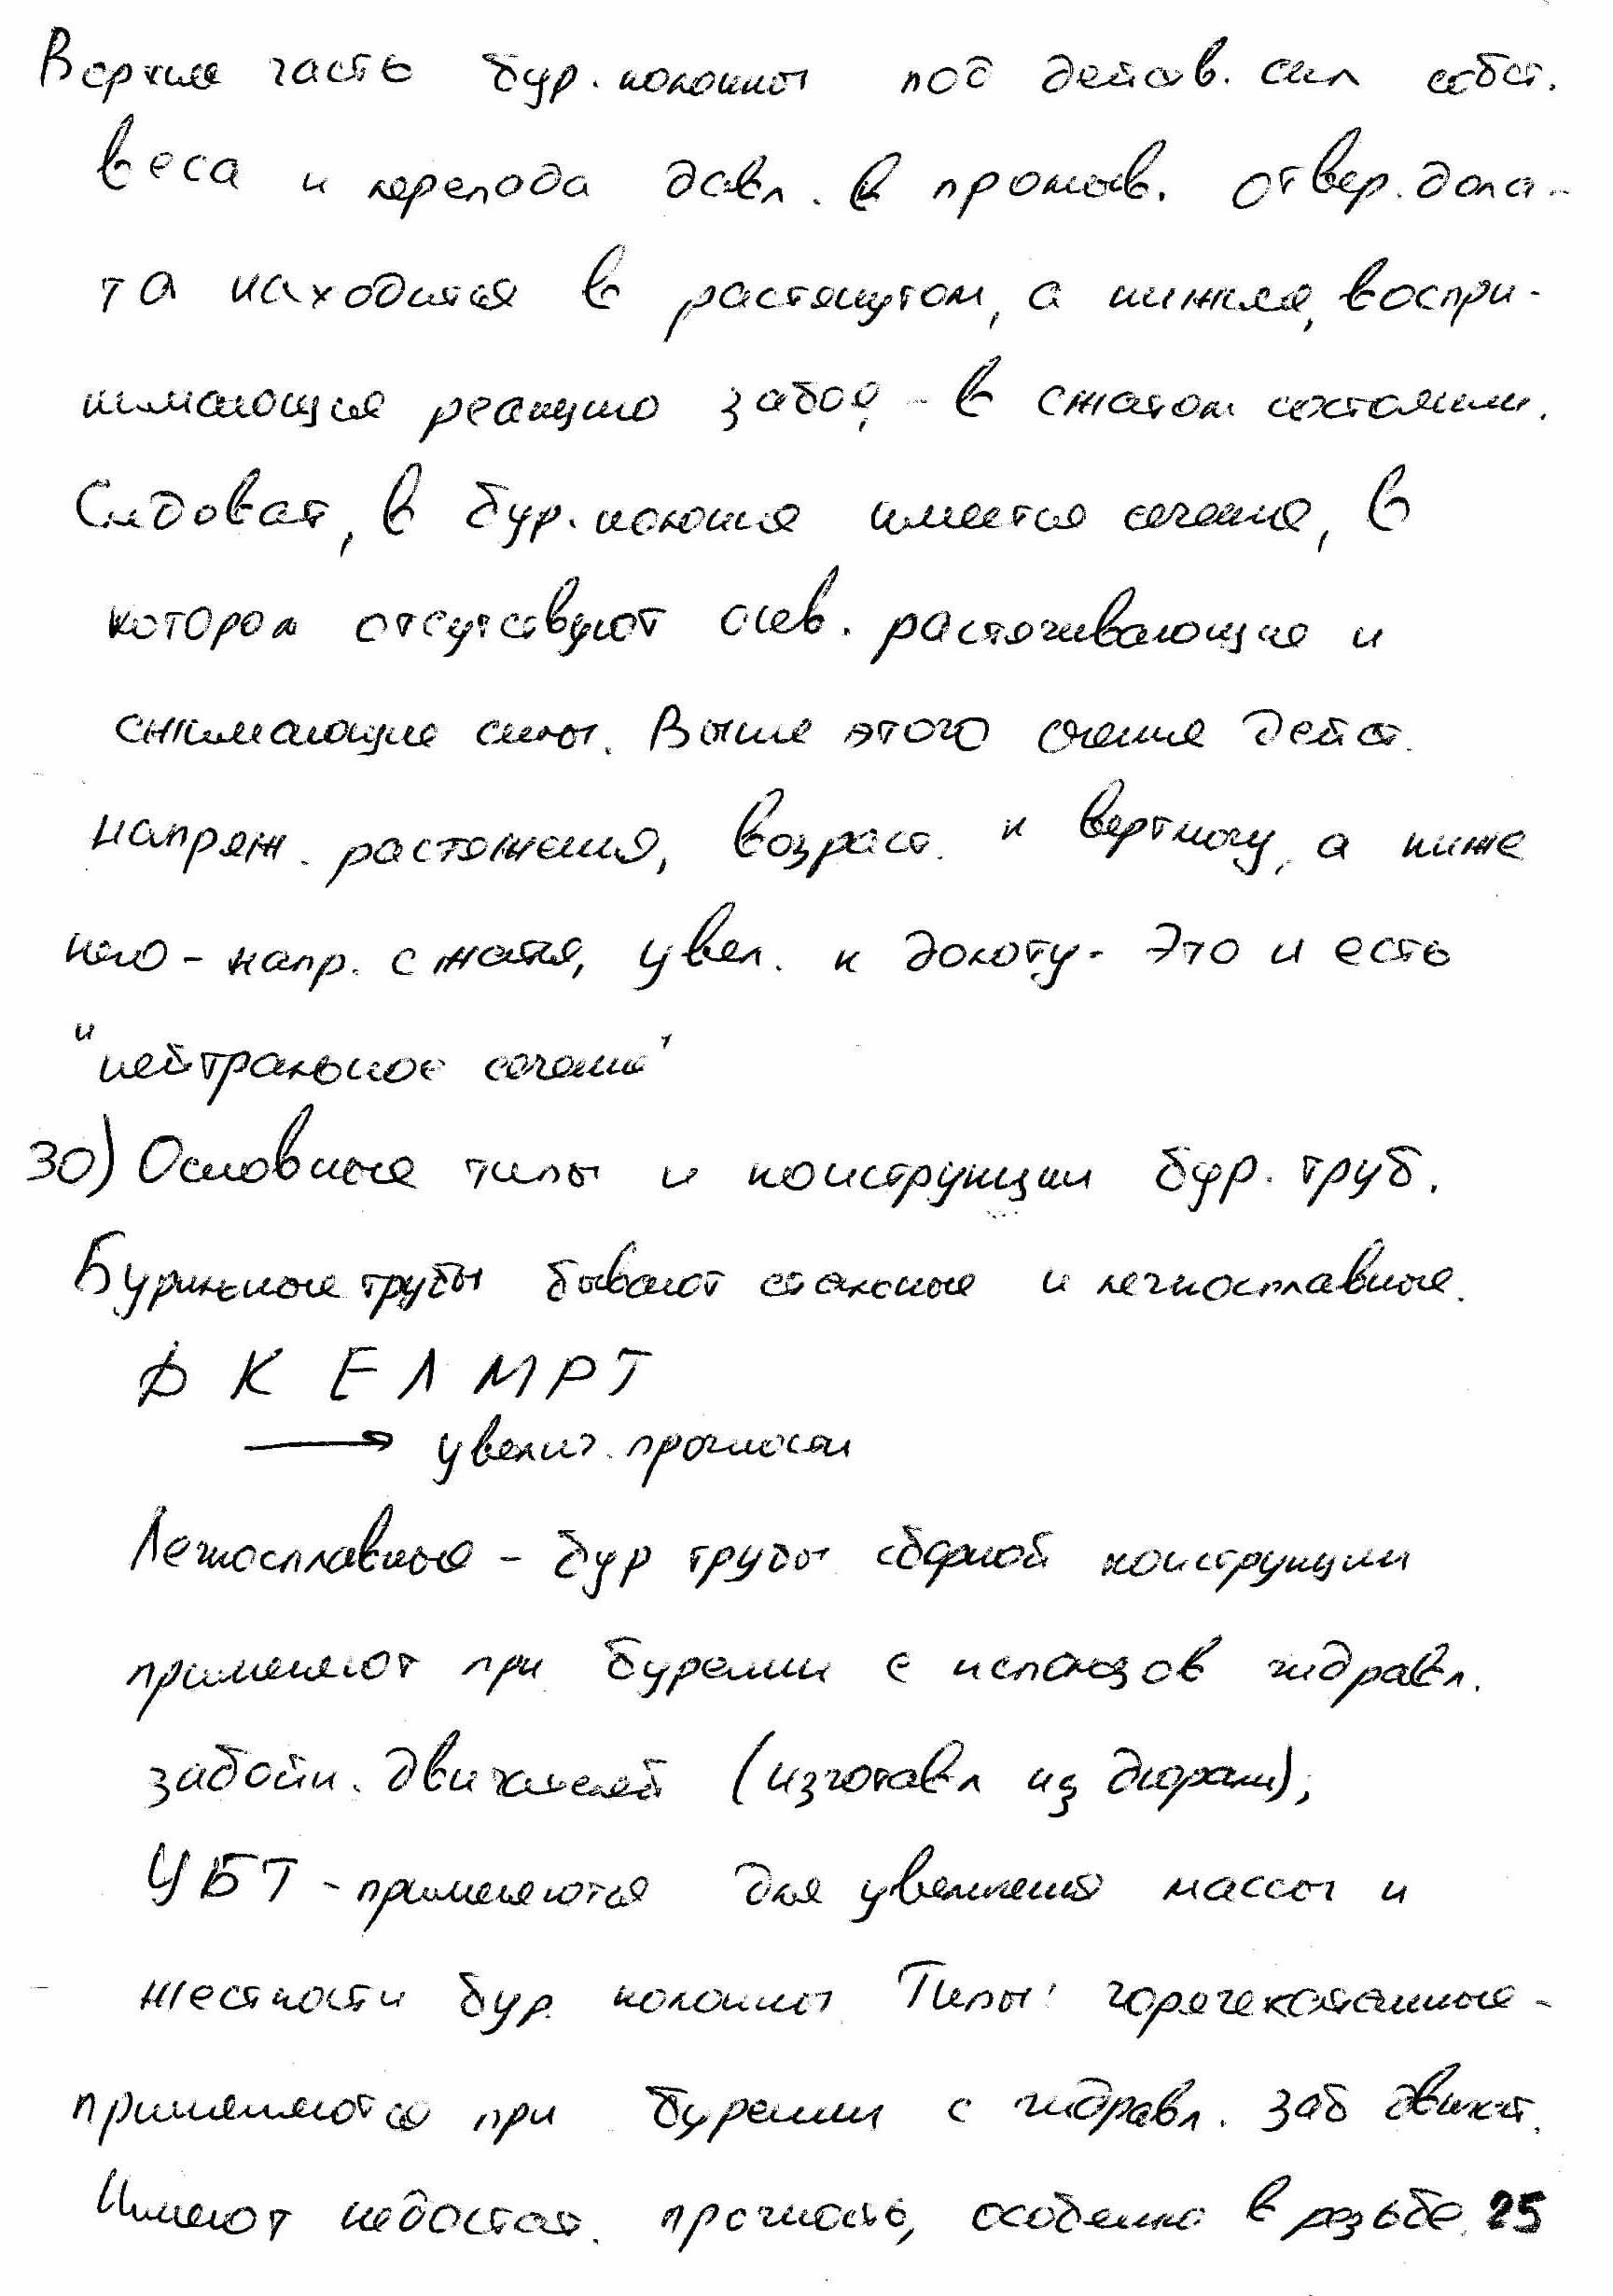 Верхняя часть бур. колонны под действ. сил собст.
веса и перепада давл. в промыв. отвер. доло-
та находится в растянутом, а нижняя, воспри-
нимающая реакцию забоя, - в сжатом состоянии.
Следоват, в бур. колонне имеется сечение, в
котором отсутствуют осев. растягивающие и
сжимающие силы. Выше этого сечения дейст.
напряж. растяжения, возраст. к вертлюгу, а ниже
него - напр. сжатия, увел. к долоту. Это и есть
"нейтральное сечение"
30) Основные типы и конструкции бур. труб.
Бурильные трубы бывают стальные и легкосплавные.
Д К Е Л М Р Т
→ увелич. прочности
Легкосплавные - бур трубы сборной конструкции
применяют при бурении с использов гидравл.
забойн. двигателей (изготавл из дюрали);
УБТ - применяются для увеличения массы и
жесткости бур. колонны Типы: горячекатанные -
применяются при бурении с гидравл. заб двигат.
Имеют недостат. прочность, особенно в резьбе. 25